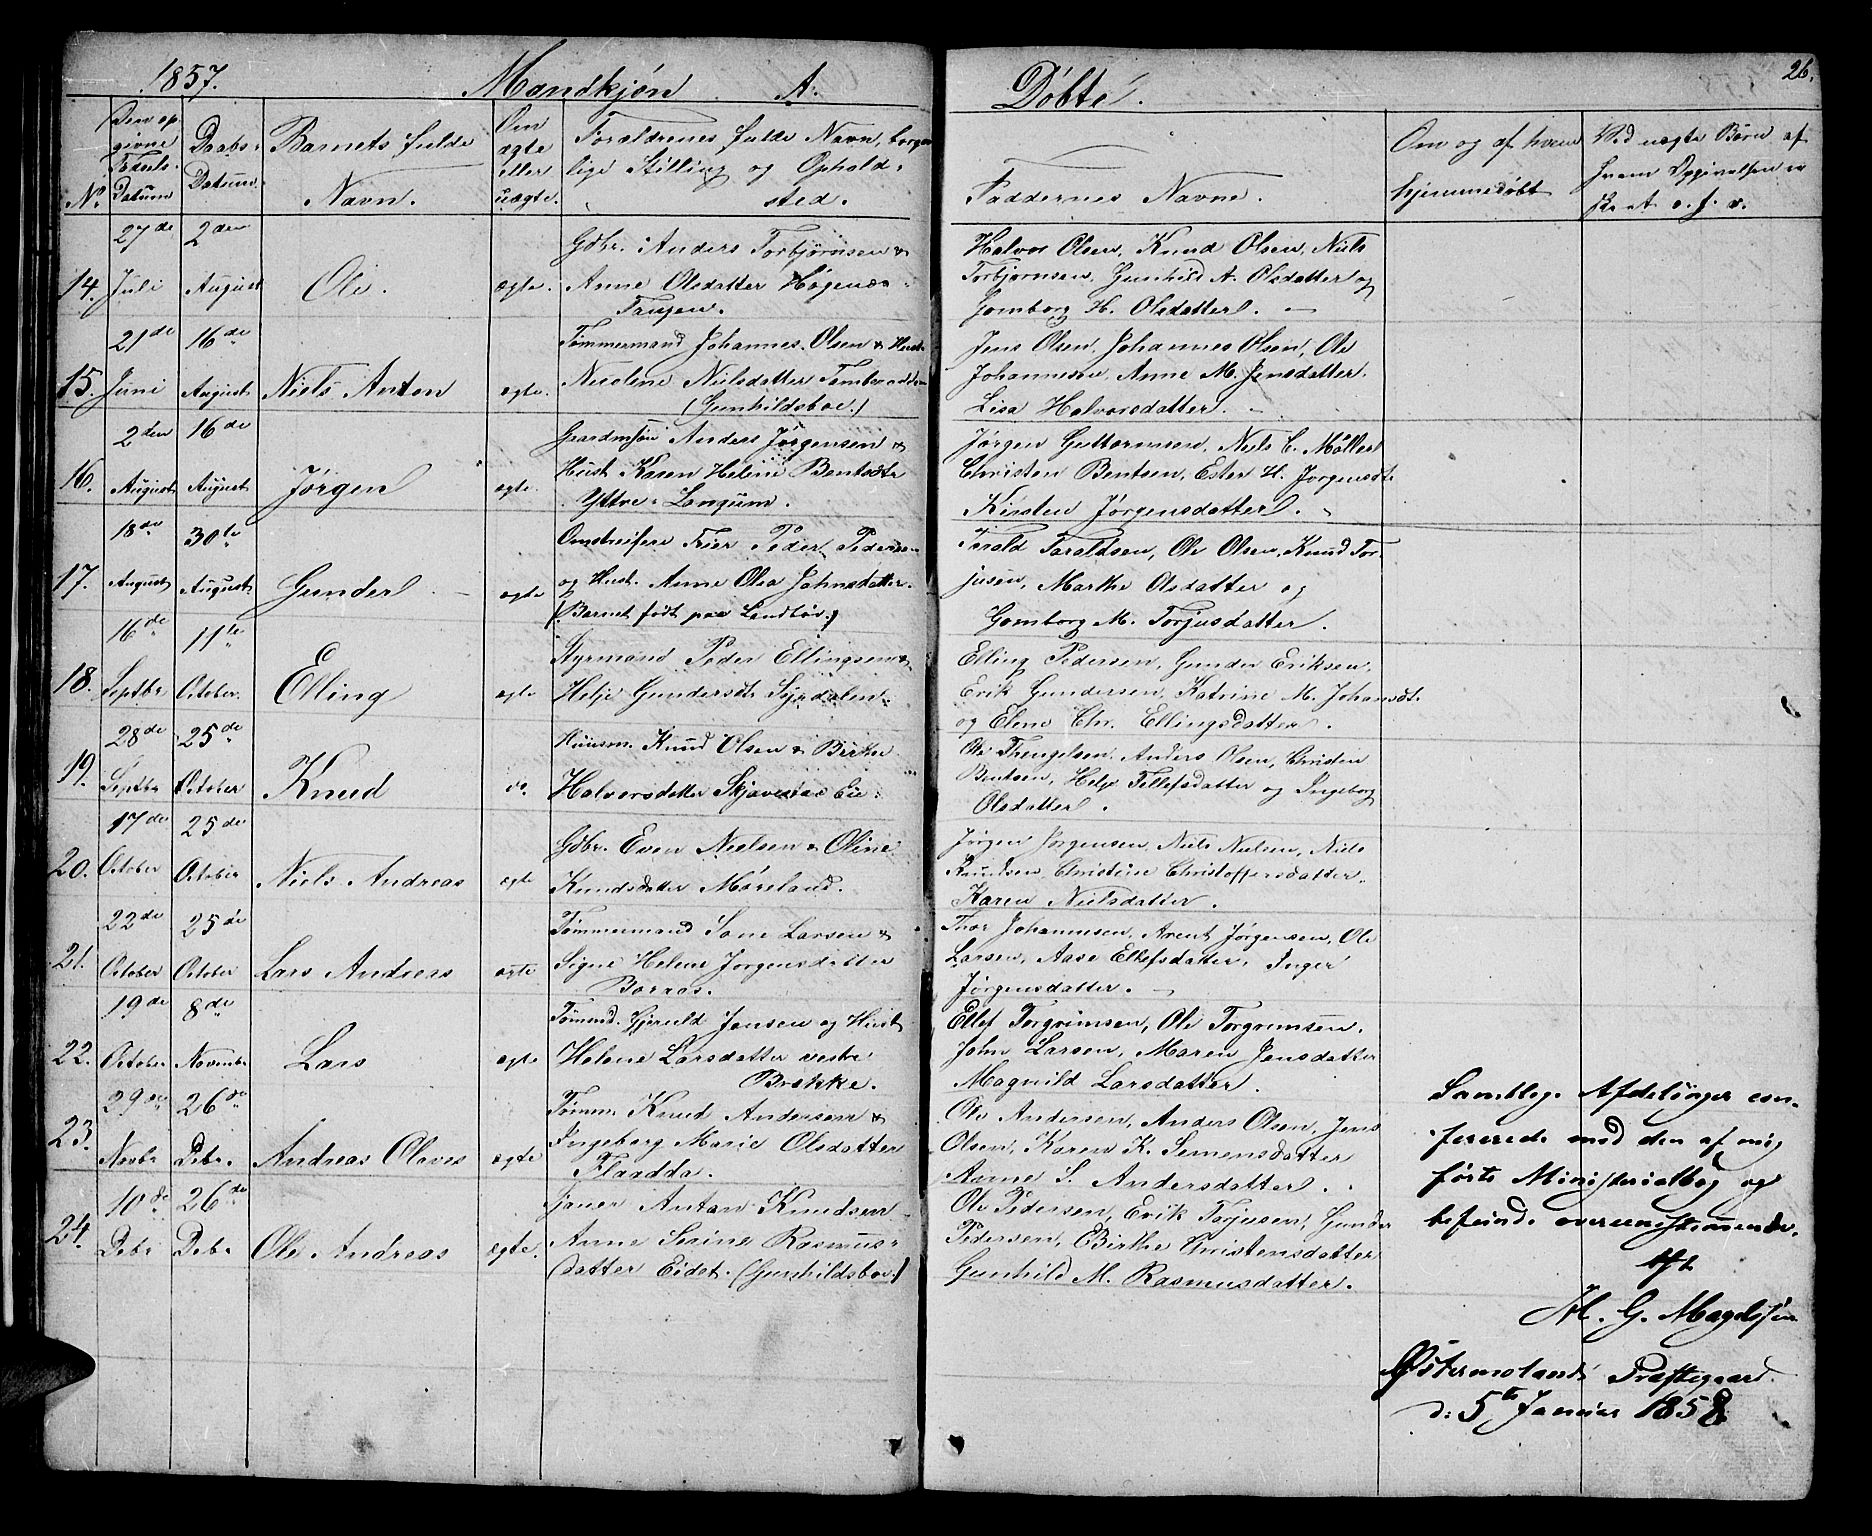 1857. Mandkjøn A. Døbte. 26.
No. Den opgivne Fødsels-Datum
Daabs-Datum
Barnets fulde Navn.
Om ægte eller uægte.
Forældrenes fulde Navn, borgerlige Stilling og Opholdsted.
Faddernes Navne.
Om og af hvem hjemmedøbt
Ved uægte Børn af hvem Opgivelsen er skeet o. s. v.
14. 27de Juli 2den August Ole. ægte.
Gdbr. Anders Torbjørnsen &
Anne Olsdatter
Tangen.
Halvor Olsen, Knud Olsen, Niels
Torbjørnsen, Gunhild A. Olsdatter og
Gomborg H. Olsdatter.
15. 21de Juni 16de August Niels Anton ægte.
Tømmermand Johannes Olsen & Hust.
Nicoline Nielsdatter
(Gunhildsboe.)
Jens Olsen, Johannes Olsen, Ole
Johannesen, Anne M. Jensdatter.
Lisa Halvorsdatter.
16. 2den August 16de August Jørgen ægte.
Gaardmsøn Anders Jørgensen &
Hust. Karen Helene Bentsdtr
Yttre-Langum.
Jørgen Guttormsen, Niels C. Møller
Christen Bentsen, Ester H. Jørgensdt.
Kirsten Jørgensdatter.
17. 18de August 30te August Gunder ægte
Omstreifere Frier Peder Pedersen
og Hust. Anne Olea Johnsdatter.
(Barnet født paa Sandløv.)
Tarald Taraldsen, Ole Olsen, Knud Tor-
jusen, Marthe Olsdatter og
Gomborg M. Torjusdatter.
18. 16de Septbr 11te October Elling ægte
Styrmand Peder Ellingsen &
Helje Gundersdtr
Elling Pedersen, Gunder Eriksen,
Erik Gundersen, Katrine M. Johansdt.
og Elene Chr. Ellingsdatter.
19. 28de Septbr 25de October Knud do.
Huusm. Knud Olsen & Birthe
Halvorsdatter
Ole Thengelsen, Anders Olsen, Christen
Bentsen, Helje Tellefsdatter og Ingeborg
Olsdatter.
20. 17de October 25de October Niels Andreas ægte
Gdbr. Even Nielsen & Oline
Knudsdatter Møreland.
Jørgen Jørgensen, Niels Nielsen, Niels
Knudsen, Christine Christoffersdatter.
Karen Nielsdatter.
21. 22de October 25de October Lars Andreas ægte
Tømmermand Lars Larsen &
Signe Helene Jørgensdatter
Boraas.
Thor Johannesen, Arent Jørgensen, Ole
Larsen, Aase Ellefsdatter, Inger
Jørgensdatter.
22. 19de October 8de Novembr Lars ægte
Tømmd. Gjeruld Jensen og Hust.
Helene Larsdatter vestre
Brekke.
Ellef Torgrimsen, Ole Torgrimsen.
John Larsen, Maren Jensdatter
Magnild Larsdatter.
23. 29de Novbr 26de Debr. Andreas Olaves ægte
Tømm. Knud Andersen &
Ingeborg Marie Olsdatter
Flardda.
Ole Andersen, Anders Olsen, Jens
Olsen, Karen K. Semensdatter
Aarne S. Andersdatter.
24. 10de Debr 26de Debr Ole Andreas ægte.
Tjener Anton Knudsen
Anne Serine Rasmus-
datter Eidet. (Gunhildsboe.)
Ole Pedersen, Erik Torjusen, Gunder
Pedersen, Birthe Christensdatter
Gunhild M. Rasmusdatter.
Samtlige Afdelinger con-
fererede med den af mig
førte Ministerialbog og
befundne overeensstemmende.
H. G. Magelssen
Østermolands Præstegaard
d: 5te Januar 1858